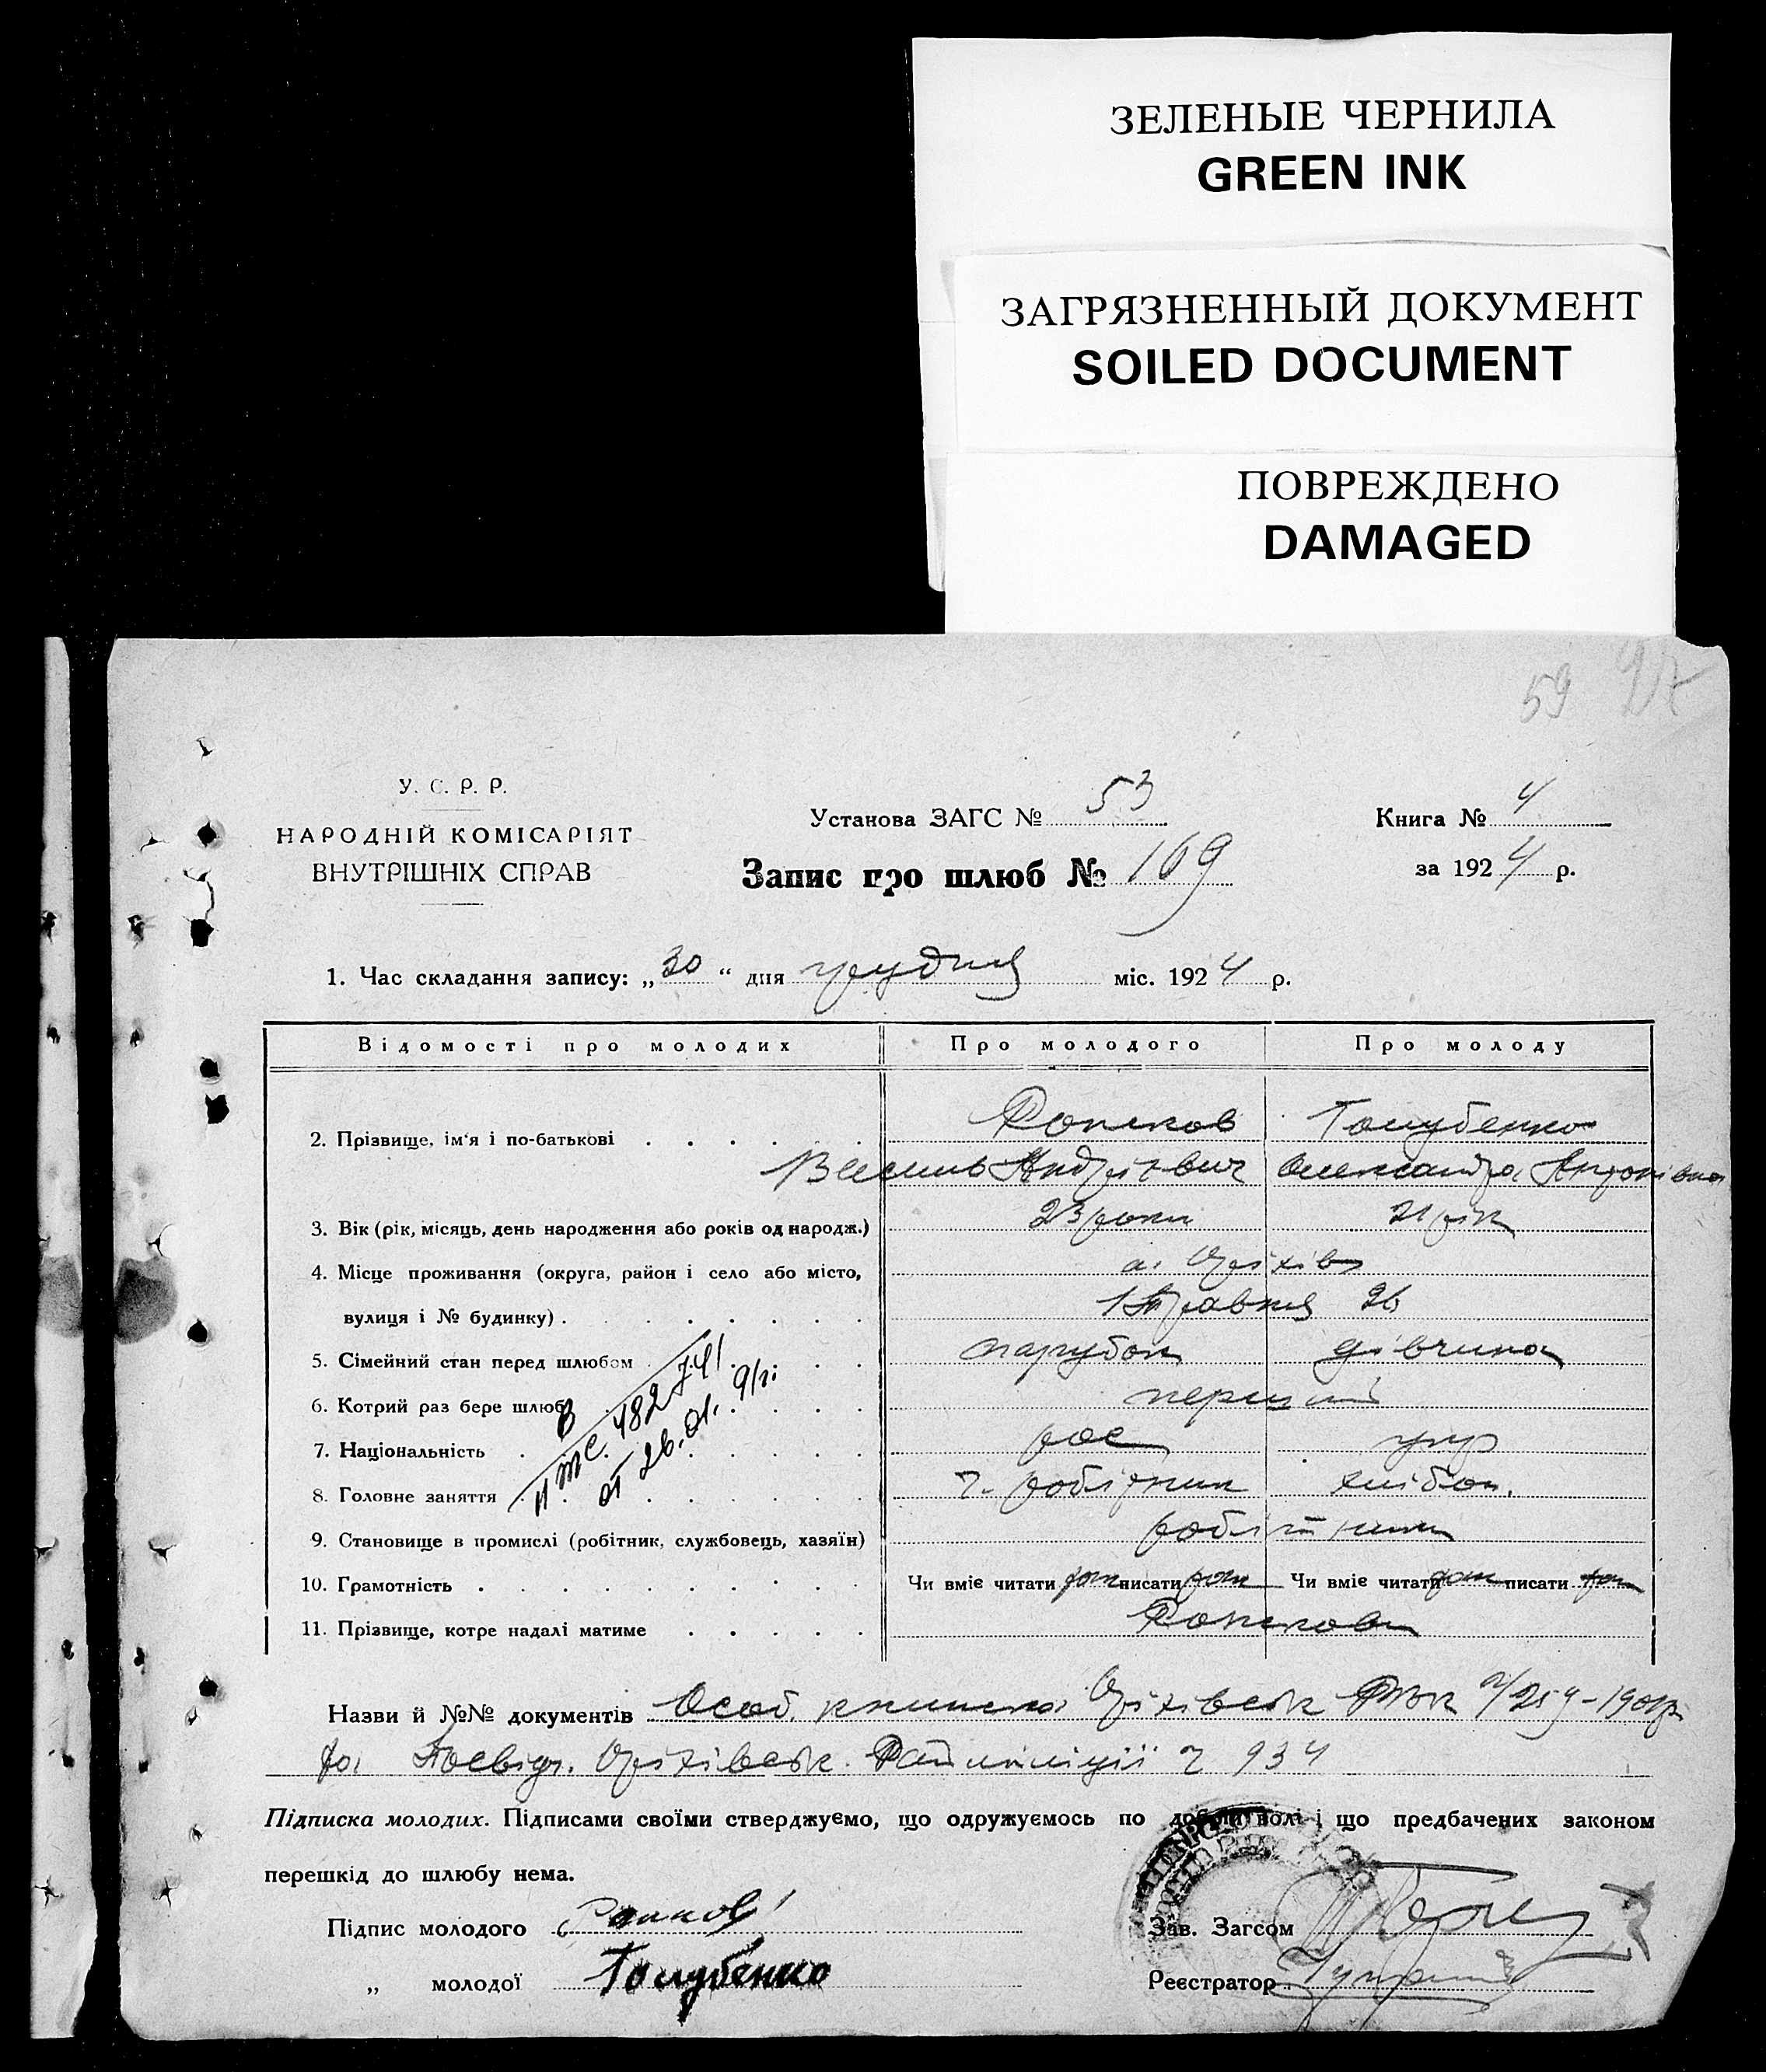 ЗЕЛЕНЫЕ ЧЕРНИЛА
GREEN INK
ЗАГРЯЗНЕННЫЙ ДОКУМЕНТ
SOILED DOCUMENT
ПОВРЕЖДЕНО
DAMAGED
59
У. С. Р. Р.
НАРОДНІЙ КОМІСАРІЯТ
ВНУТРІШНІХ СПРАВ
Установа ЗАГС № 53
Книга № 4
Запис про шлюб № 169
за 1924 р.
1. Час складання запису: „30“ дня грудня міс. 1924 р.
Відомості про молодих Про молодого Про молоду
2. Прізвище, ім'я і по-батькові Голубенко
Василь Андрієвич Олександра Антонівна
3. Вік (рік, місяць, день народження або років од народж.) 23 роки 21 рік
4. Місце проживання (округа, район і село або місто, Оріхів
вулиця і № будинку) 1 Травня 26
5. Сімейний стан перед шлюбом парубок дівчина
6. Котрий раз бере шлюб перший
7. Національність рос укр
8. Головне заняття ч. робітник хлібоп.
9. Становище в промислі (робітник, службовець, хазяїн) робітники
10. Грамотність Чи вміє читати писати Чи вміє читати писати
11. Прізвище, котре надалі матиме
48274
от 26.01.
Назви й №№ документів Особ. книжка Оріхівськ
та Посвідч. Оріхівськ. Райміліції ч 934
Підписка молодих. Підписами своїми стверджуємо, що одружуємось по добрій волі і що предбачених законом
перешкід до шлюбу нема.
Підпис молодого
„ молодої Голубенко
Зав. Загсом
Реєстратор